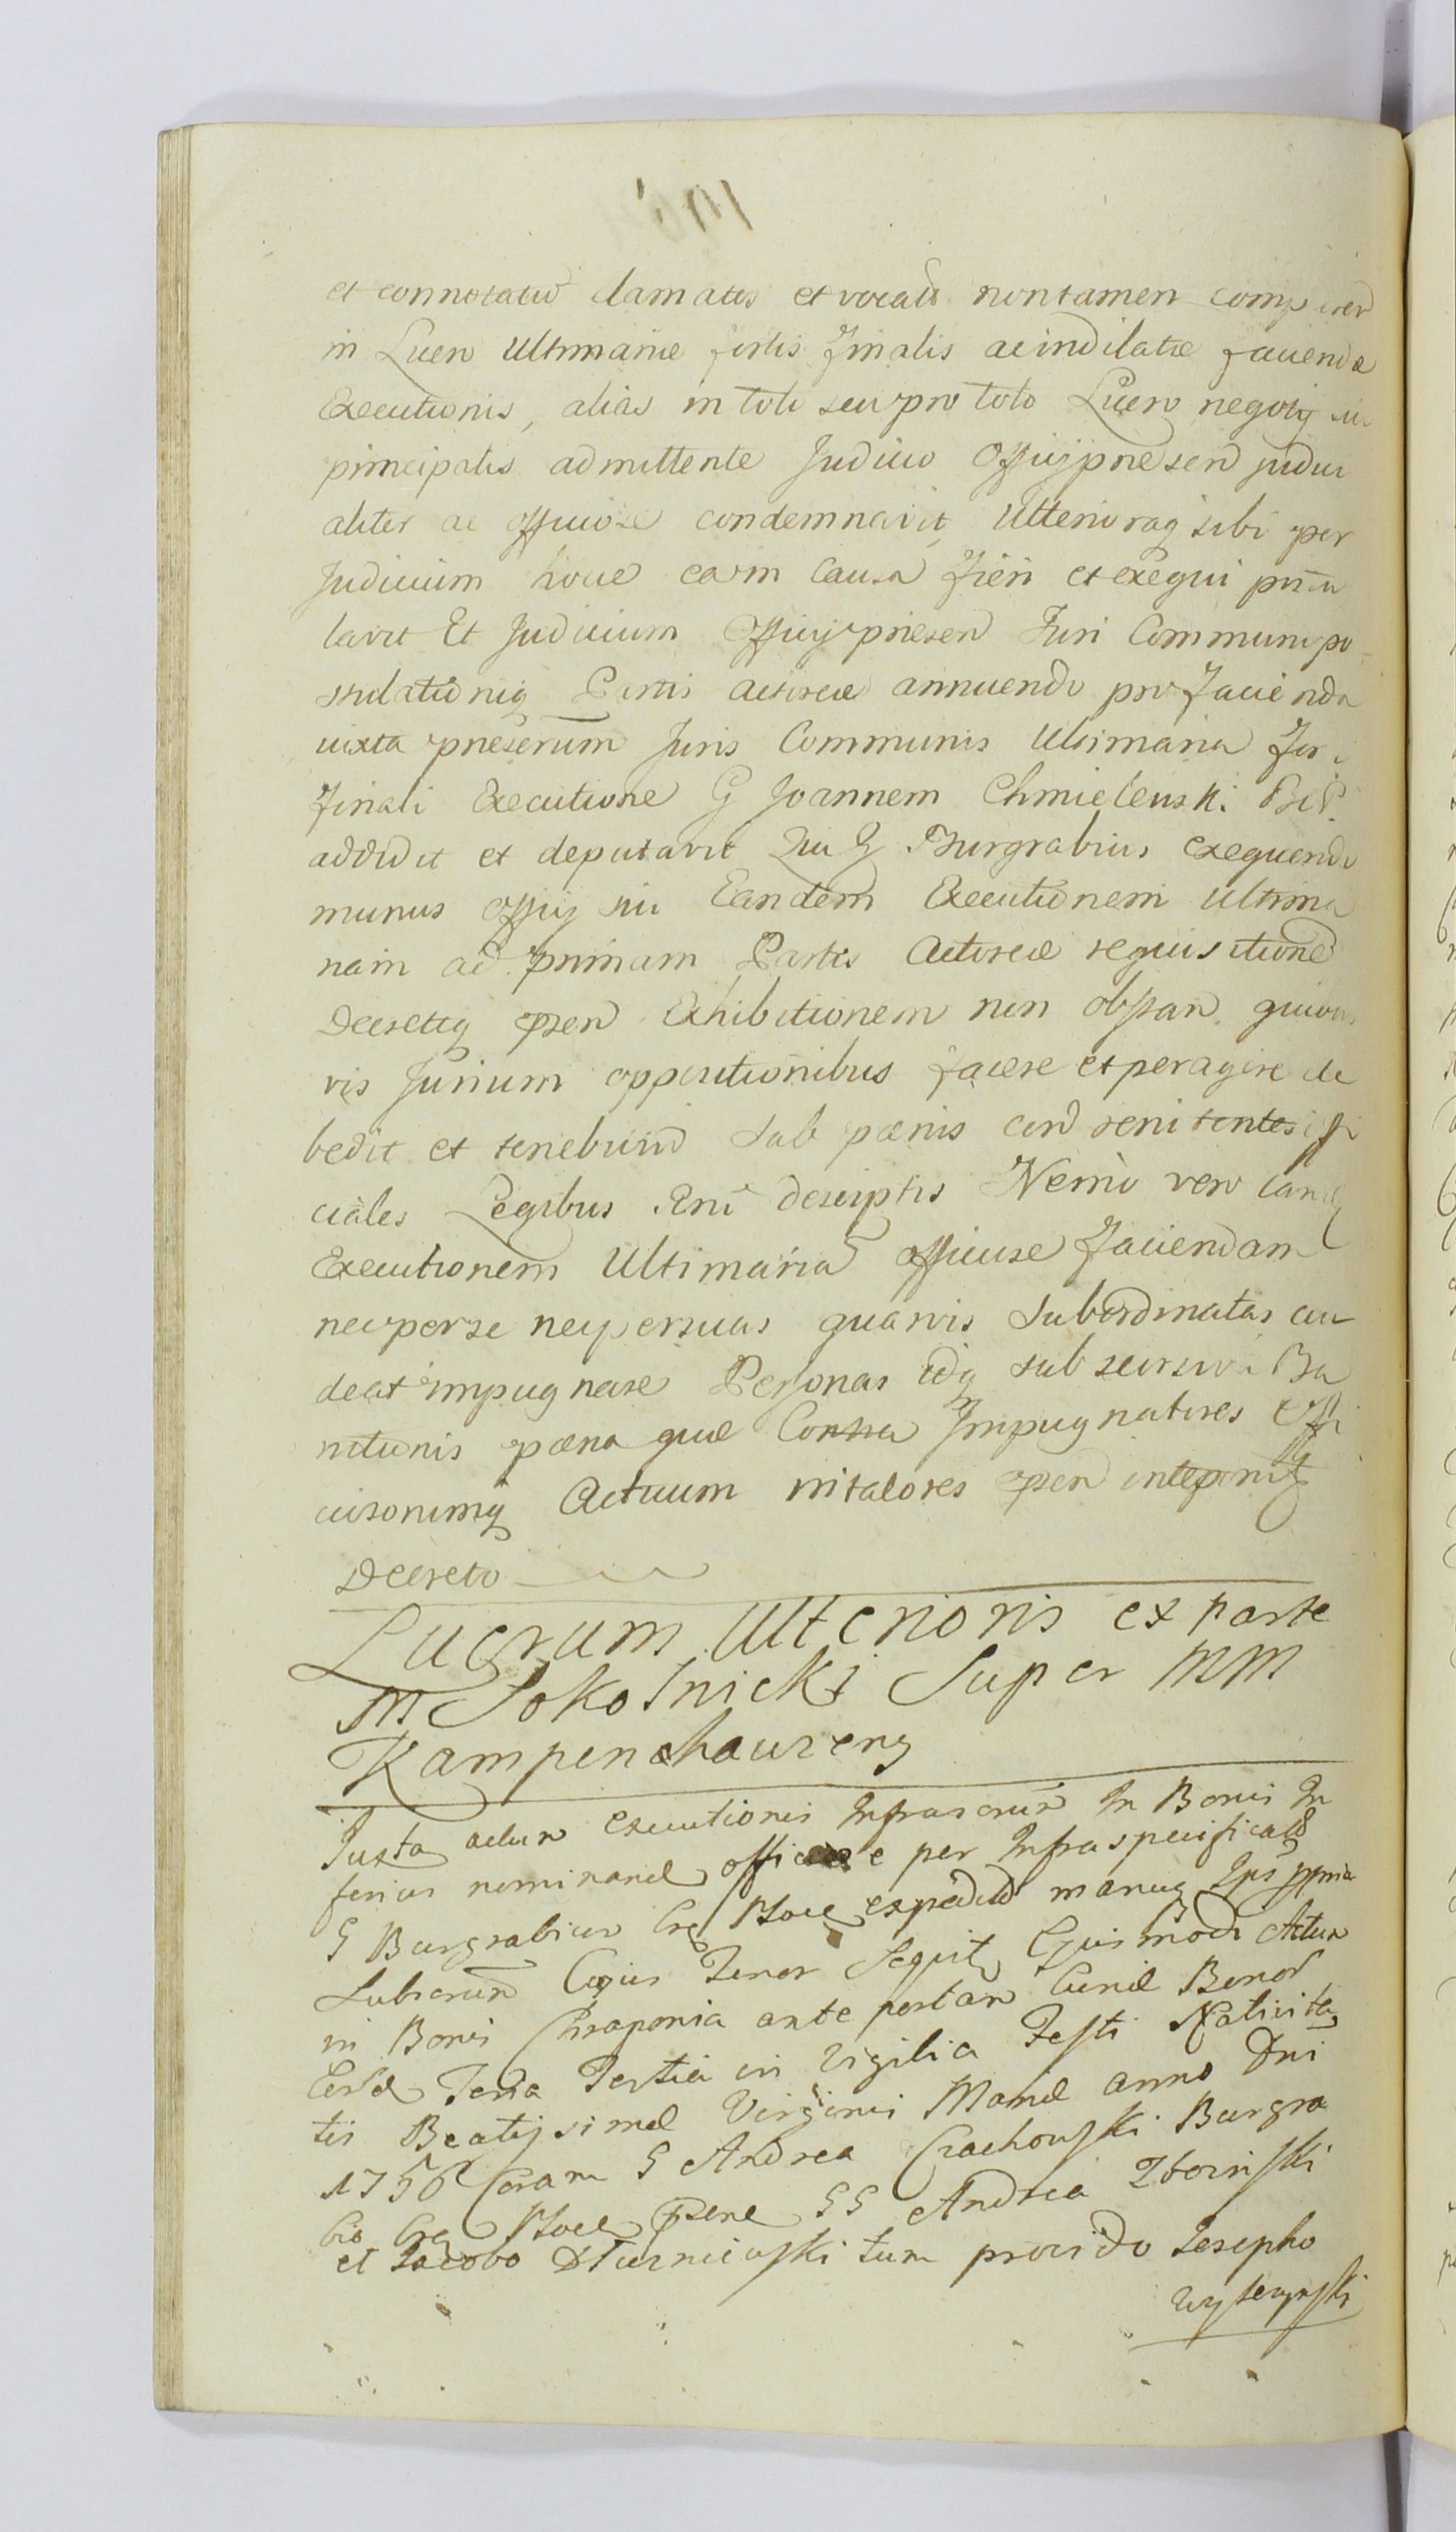 et connotatū clamatos et vocatū nontamen comparen
in Lucro Ultimariæ fortis finalis ac indilatæ faciendæ
Executionis, alias in toto seu pro toto Lucro negotij sui
principalis admittente Judicio Officij præsen judici
aliter ac officiose condemnavit, Ulterioraq sibi per
Judicium hocce ea in Causa fieri et exequi pstu
lavit Et Judicium Officij præsen Juri Communi po-
stulationiq Partis actoreæ annuendo pro facienda
iuxta præscrum Juris Communis Ultimaria for
finali Executione G Joannem Chmielewski
addidit et deputavit Qui G Burgrabius exequendo
munus officij sui Eandem Executionem Ultima
riam ad primam Partis Actoreæ requisitione
Decretiq præsen Exhibitionem non obstan quibus
vis Jurium oppositionibus facere et peragere de
bebit et tenebitur Sub pænis con renitentes offi
ciales Legibus Rni descriptis Nemo vero tam
Executionem Ultimaria officiose faciendam
nec per se nec per suas quasvis Subordinatas au
deat impugnare Personas idq sub Ba
nitionis pæna quæ Contra Impugnatores Offi
ciosorumq Actuum violatores præsen
Decreto
Lucrum Ulterioris ex parte
M Sokolnicki Super MM
Kampenchauzeny
Juxta actum executionis Infrascrum In Bonis In
ferius nominand officiose per Infraspecificatū
G Burgrabium Crg expeditū manuq Ips ppria
Subscrum Cujus Tenor Sequitr Ejusmodi Actum
in Bonis Chraponia ante portam Curiæ Bonor
Feria Tertia in Vigilia Festi Nativita
tis Beatissimæ Virginis Mariæ anno Dni
1756 Coram G Andrea Czachowski Burgra
bio Crg præsene GG Andrea Zboinski
et Jacobo Sturniewski tum provido Josepho